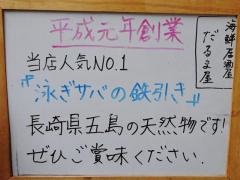 海鮮居酒屋
だるま屋
平成元年創業
当店人気NO.1
"泳ぎサバの鉄引き"
長崎県五島の天然物です!
ぜひご賞味ください.